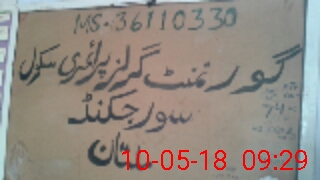 MS-36110330
گورنمنٹ گرلز پرائمری سکول
سورجکنڈ
ملتان
10-05-18 09:29